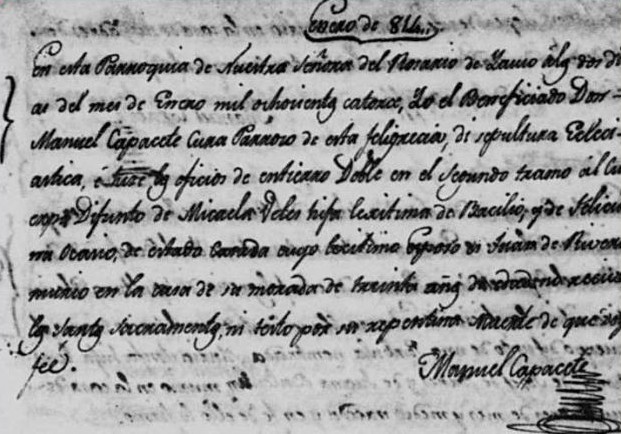 Enero de 814.
En esta Parroquia de Nuestra Señora del Rosario de Yauco á los dos di-
as del mes de Enero mil ochocientos catorce, Yo el Beneficiado Don
Manuel Capacete Cura Párroco de esta feligrecia, di sepultura Ecleci-
astica, é hice los oficios de entierro Doble en el Segundo tramo al Cu-
erpo Difunto de Micaela Veles hija lexitima de Bacilio, y de Felicia-
na Ocacio, de estado Casada cuyo lexitimo Esposo es Juan de Rivera
murio en la casa de su morada de treinta años de edad no recivio
los Santos Sacramentos, ni testo por su repentina Muerte de que doy
feé.
Manuel Capacete